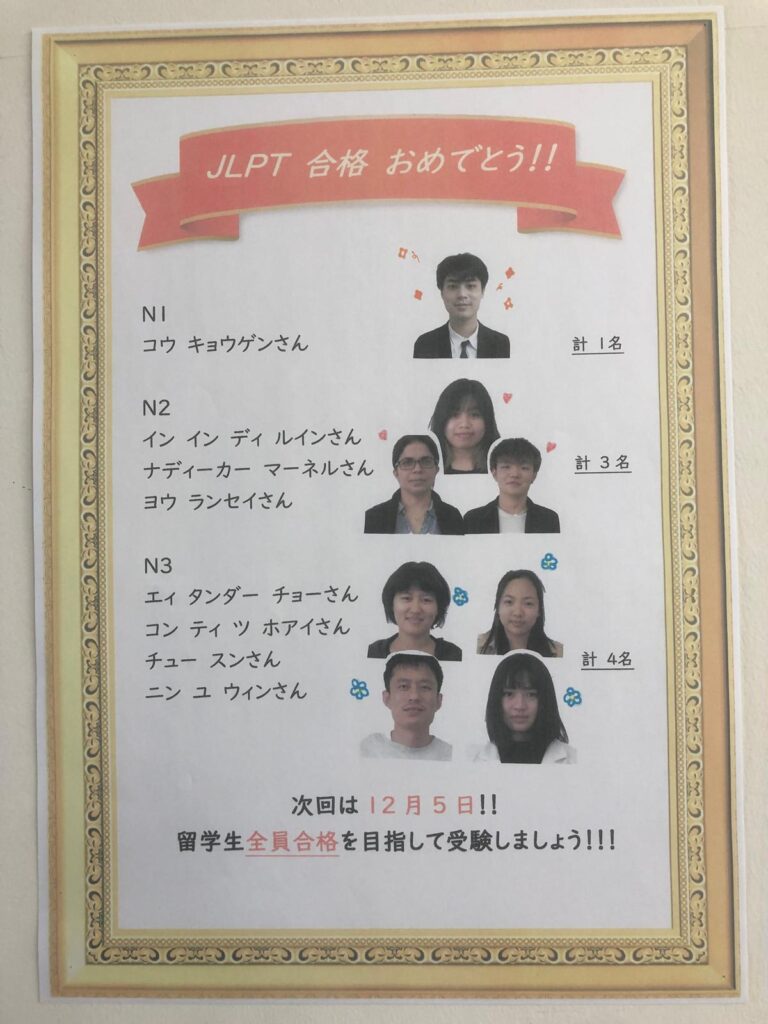 JLPT 合格 おめでとう!!
N1
コウ キョウゲンさん
計 1名
N2
イン イン ディ ルインさん
ナディーカー マーネルさん
ヨウ ランセイさん
計 3名
N3
エィ タンダー チョーさん
コン ティ ツ ホアイさん
チュー スンさん
ニン ユ ウィンさん
計 4名
次回は 12月5日!!
留学生全員合格を目指して受験しましょう!!!